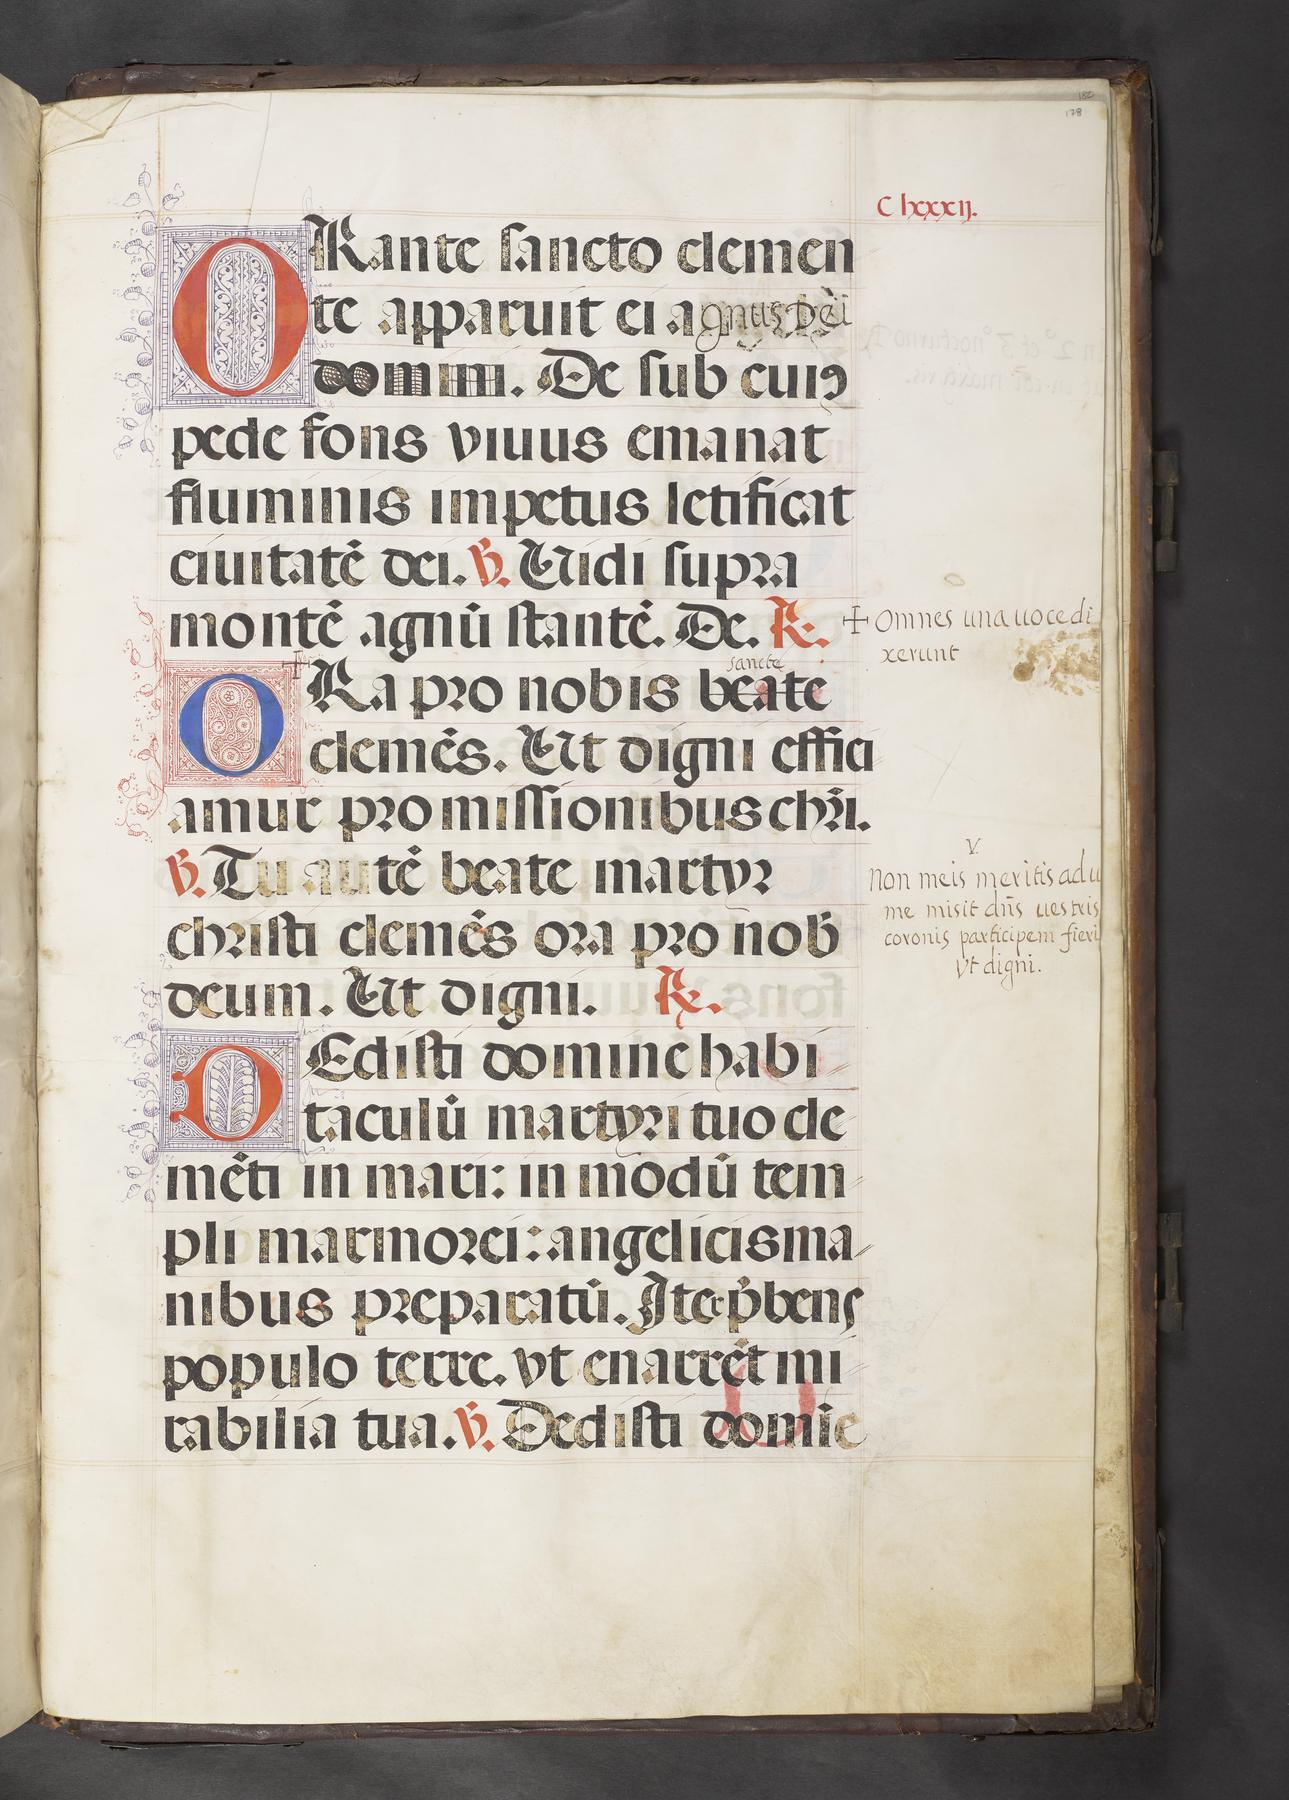 182
178
Clxxxij.
ORante sancto clemen
te apparuit ei agnus Dei
domini. De sub cuiꝯ
pede fons viuus emanat
fluminis impetus letificat
ciuitatē dei. ℣. Uidi supra
montē agnū stantē. De. ℟.
+ Omnes una uoce di
xerunt
+
sancte
ORa pro nobis beate
clemēs. Ut digni effici
amur promissionibus chr̄i.
℣. Tu autē beate martyr
christi clemēs ora pro nob̄
deum. Ut digni. ℟.
V.
Non meis meritis ad u
me misit dn̄s uestris
coronis participem fieri
Vt digni.
DEdisti domine habi
taculū martyri tuo cle
mēti in mari: in modū tem
pli marmorei: angelicis ma
nibus preparatū. Iter p̄bens
populo terre. vt enarrēt mi
rabilia tua. ℣. Dedisti domīe